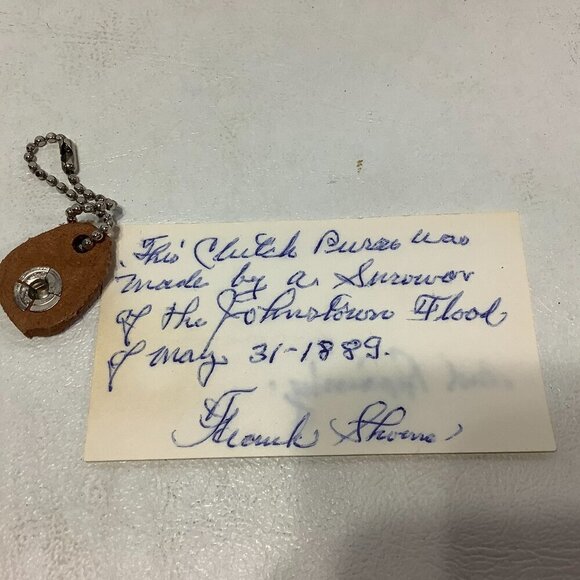 This Clutch Purse was
made by a Surovor
of the Johnstown Flood
of May 31-1889.
Frank